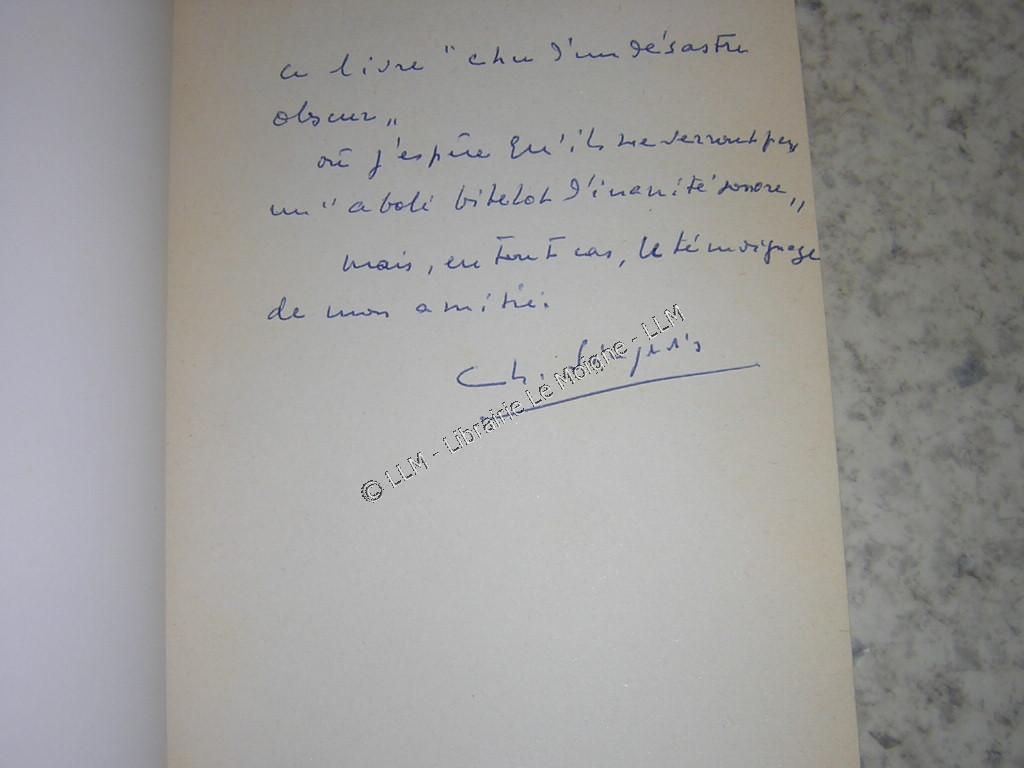 ce livre "chu d'un désastre
obscur"
où j'espère qu'ils ne verront pas
un "aboli bibelot d'inanité sonore"
mais, en tout cas, le témoignage
de mon amitié.
Ch.
© LLM - Librairie Le Moigne - LLM